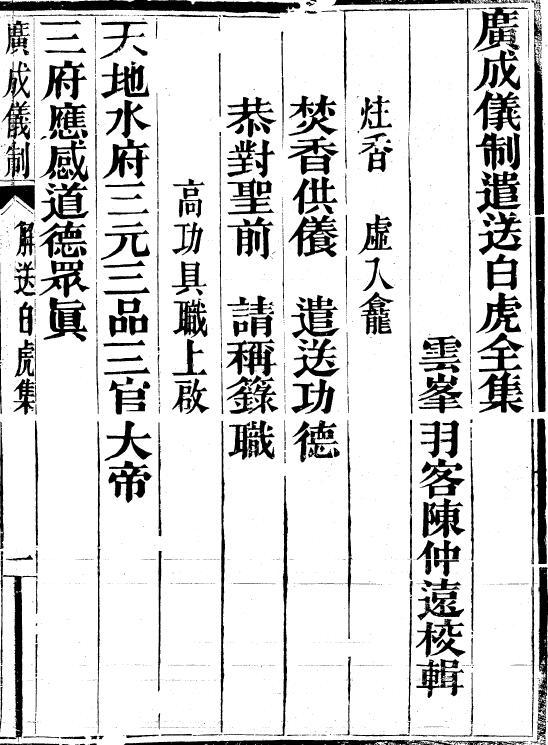 廣成儀制遣送白虎全集
雲峯羽客陳仲遠校輯
炷香　虛入龕
焚香供養　遣送功德
恭對聖前　請稱籙職
高功具職上啟
天地水府三元三品三官大帝
三府應感道德眾眞
廣成儀制　解送白虎集　一